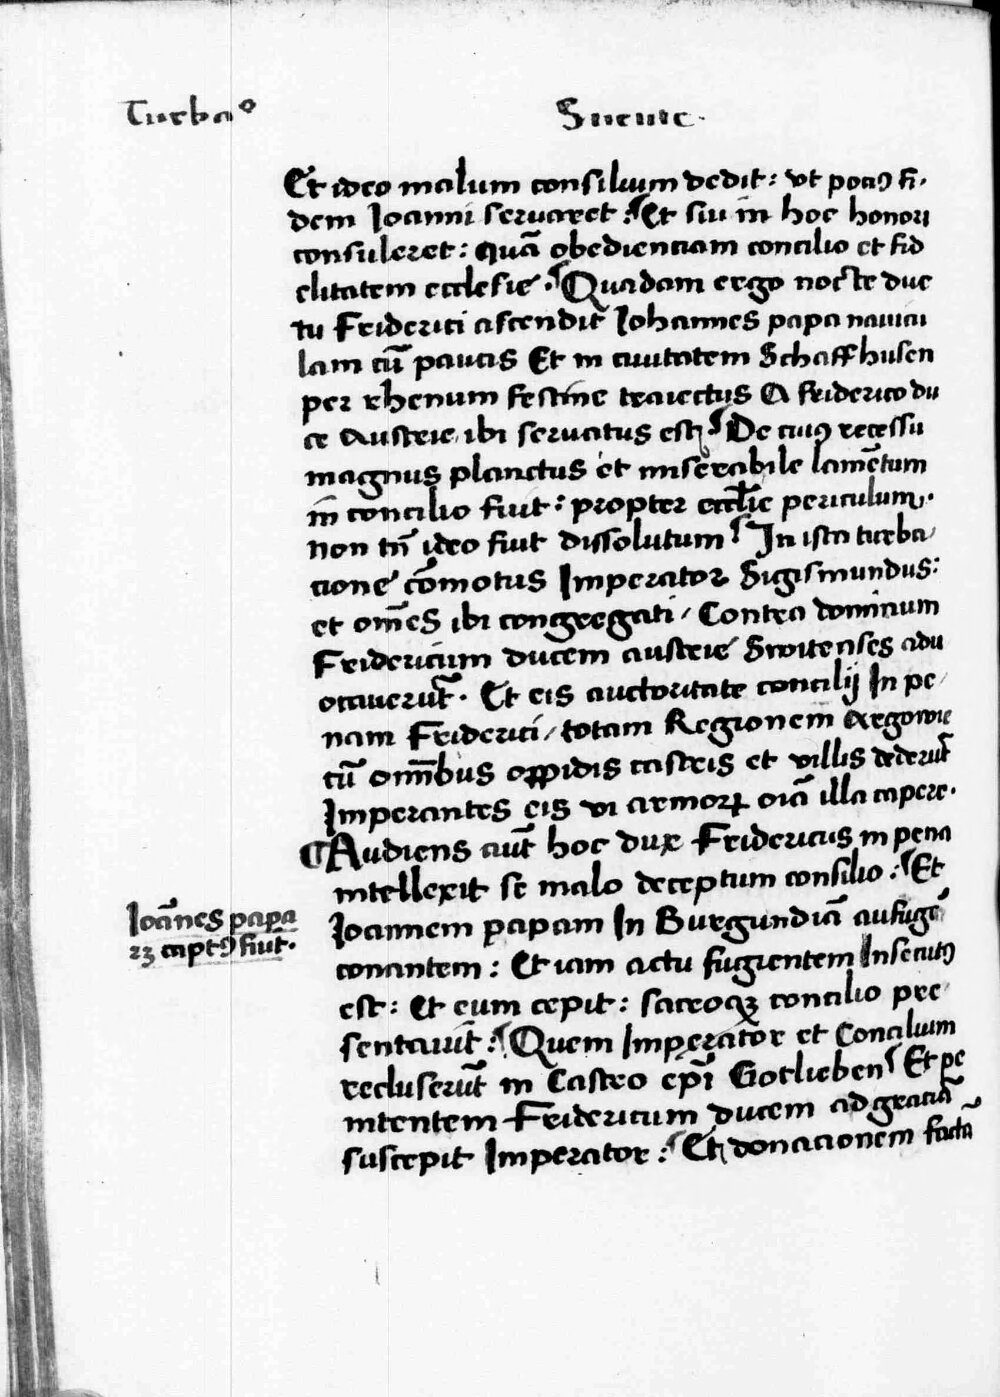 Turbaº Sueuie.
Et ideo malum consilium dedit: vt pociꝰ fi-
dem Joanni seruaret: Et siu in hoc honori
consuleret: quā obedienciam concilio et fid
elitatem ecclesie. Quadam ergo nocte duc
tu Friderici ascendit Johannes papa nauicu
lam cū paucis Et in ciuitatem Schaffhusen
per rhenum festine traiectus A friderico du
ce Austrie, ibi seruatus est. De cuiꝰ recessu
magnus planctus et miserabile lamētum
in concilio fuit: propter eccl̄ie periculum.
non tn̄ ideo fuit dissolutum. In ista turba
cione cōmotus Imperator Sigismundus:
et om̄es ibi congregati / Contra dominum
Fridericum ducem austrie Switenses adu
ocauerūt. Et eis auctoritate concilij In pe
nam Friderici / totam Regionem Argowie
cū omībus oppidis castris et villis dederūt
Imperantes eis vi armoꝝ oīa illa capere.
¶Audiens aūt hoc dux Fridericus in pena
intellexit se malo deceptum consilio: Et
Joannem papam In Burgundiā aufugē
conantem: Et iam actu fugientem Insecutꝰ
est: Et eum cepit: sacroqꝫ concilio pre
sentauit: Quem Imperator et Concilium
recluserūt in Castro ep̄i Gotlieben Et pe
nitentem Fridericum ducem ad graciā
suscepit Imperator: Et donacionem factā
Joānes papa
23 captꝰ fuit.